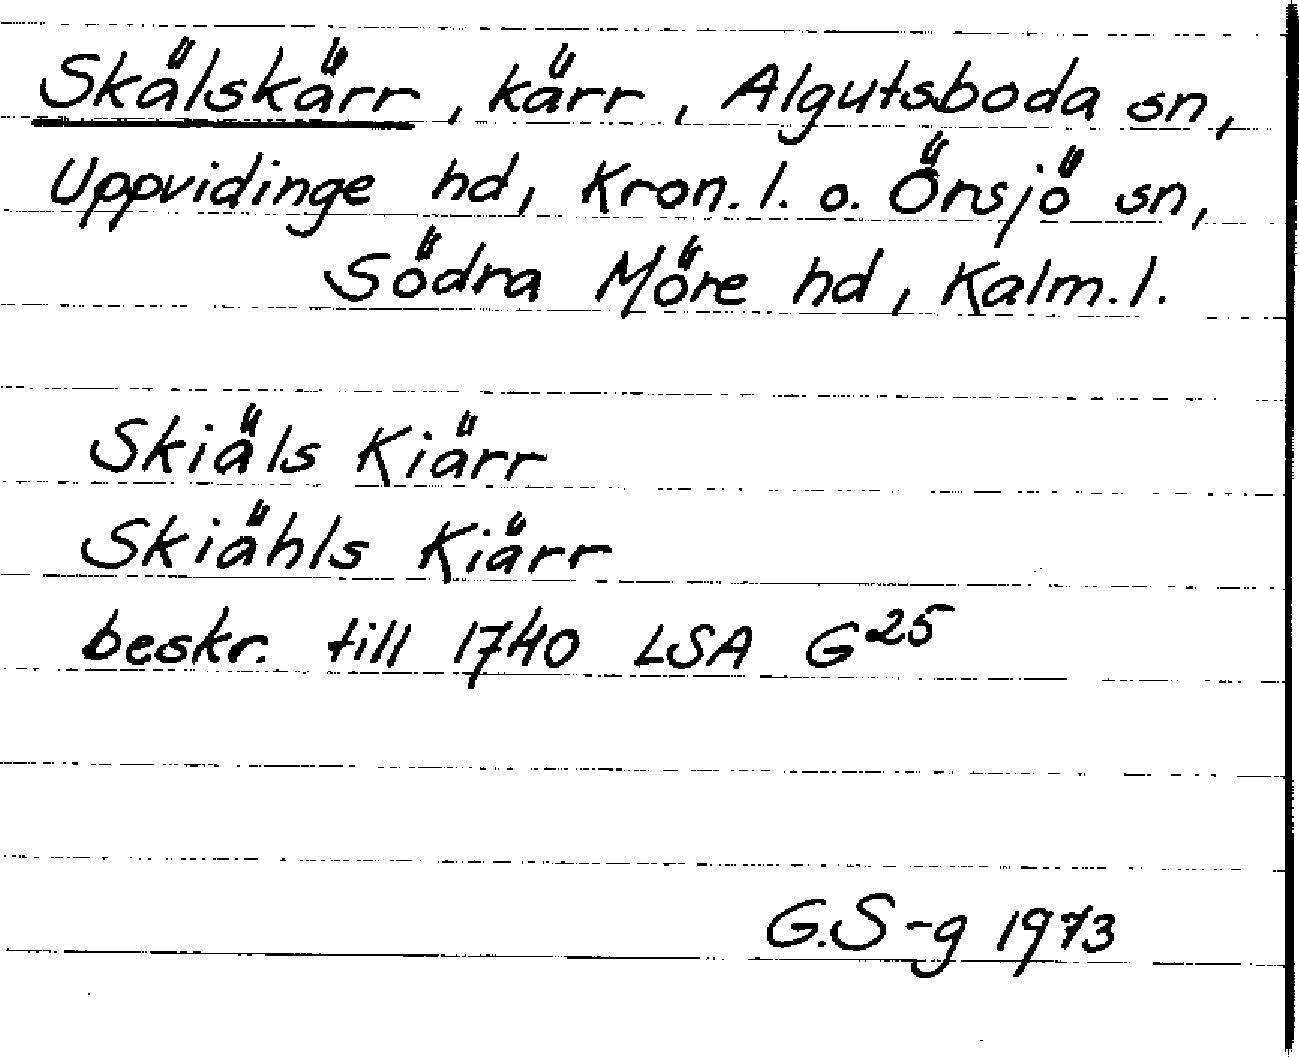 Skälskärr, kärr, Algutsboda sn,
Uppvidinge hd, Kron. l. o. Örsjö sn,
Södra Möre hd, Kalm. l.
Skiäls Kiärr
Skiähls Kiärr
beskr. till 1740 LSA G25
G.S-g 1973